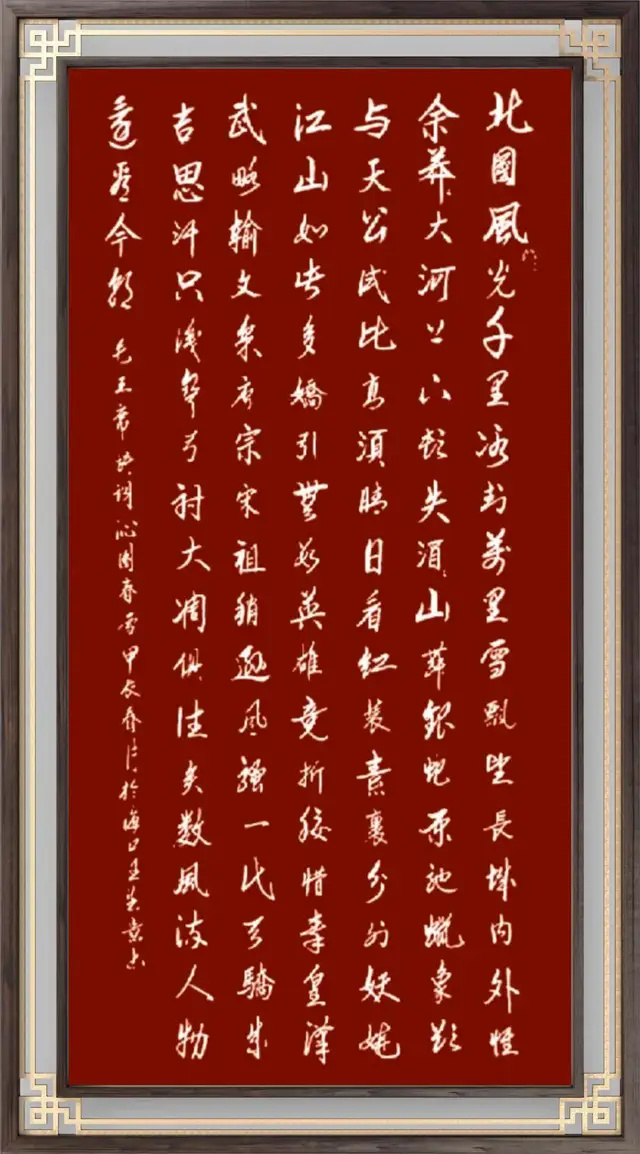 北國風光千里冰封萬里雪飄望長城内外惟
余莽大河上下頓失滔山舞銀蛇原馳蠟象欲
与天公試比高須晴日看紅裝素裹分外妖嬈
江山如此多嬌引無數英雄競折腰惜秦皇漢
武略輸文采唐宗宋祖稍遜風騷一代天驕成
吉思汗只識彎弓射大雕俱往矣數風流人物
還看今朝 毛主席诗词沁園春雪甲辰春於海口王